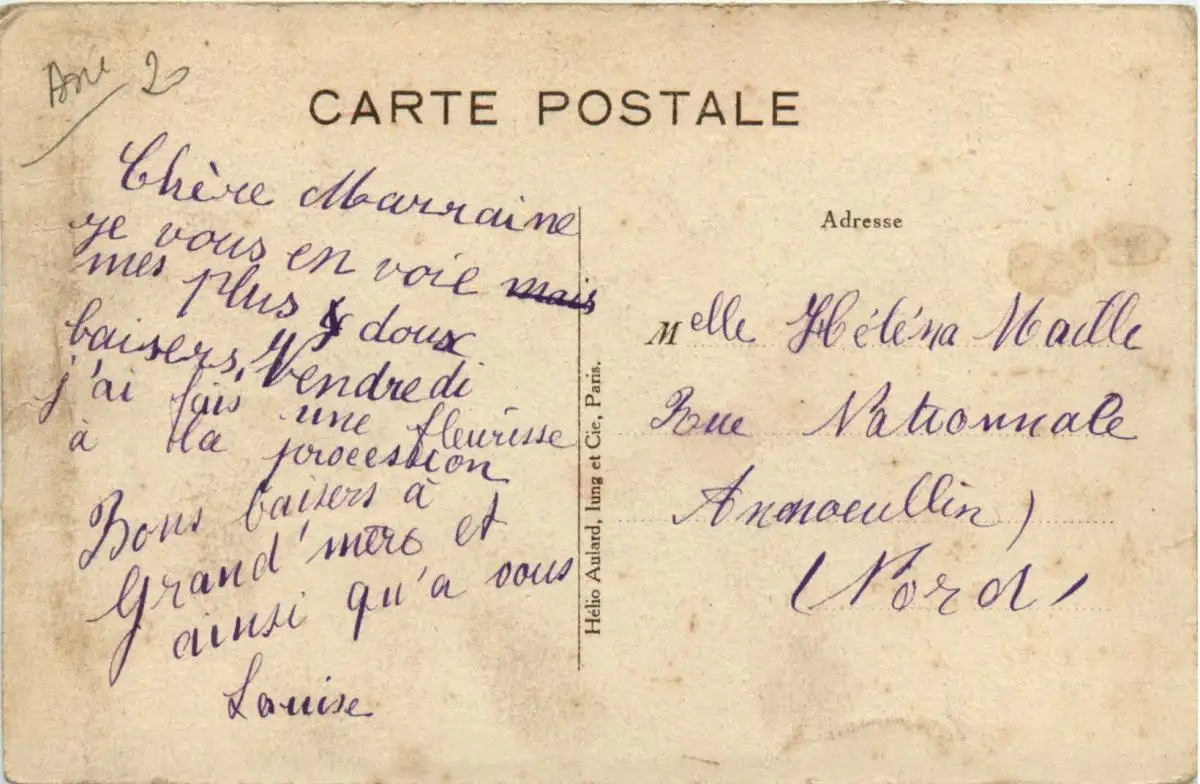 20
CARTE POSTALE
Chère Marraine
je vous en voie mais
mes plus doux
baisers, Vendredi
j'ai fais une fleurisse
à la procession
Bons baisers à
Grand'mère et
ainsi qu'a vous
Louise
Hélio Aulard, Iung et Cie., Paris.
Adresse
Melle Héléna Maille
Rue Nationnale
Annoeullin)
(Nord)